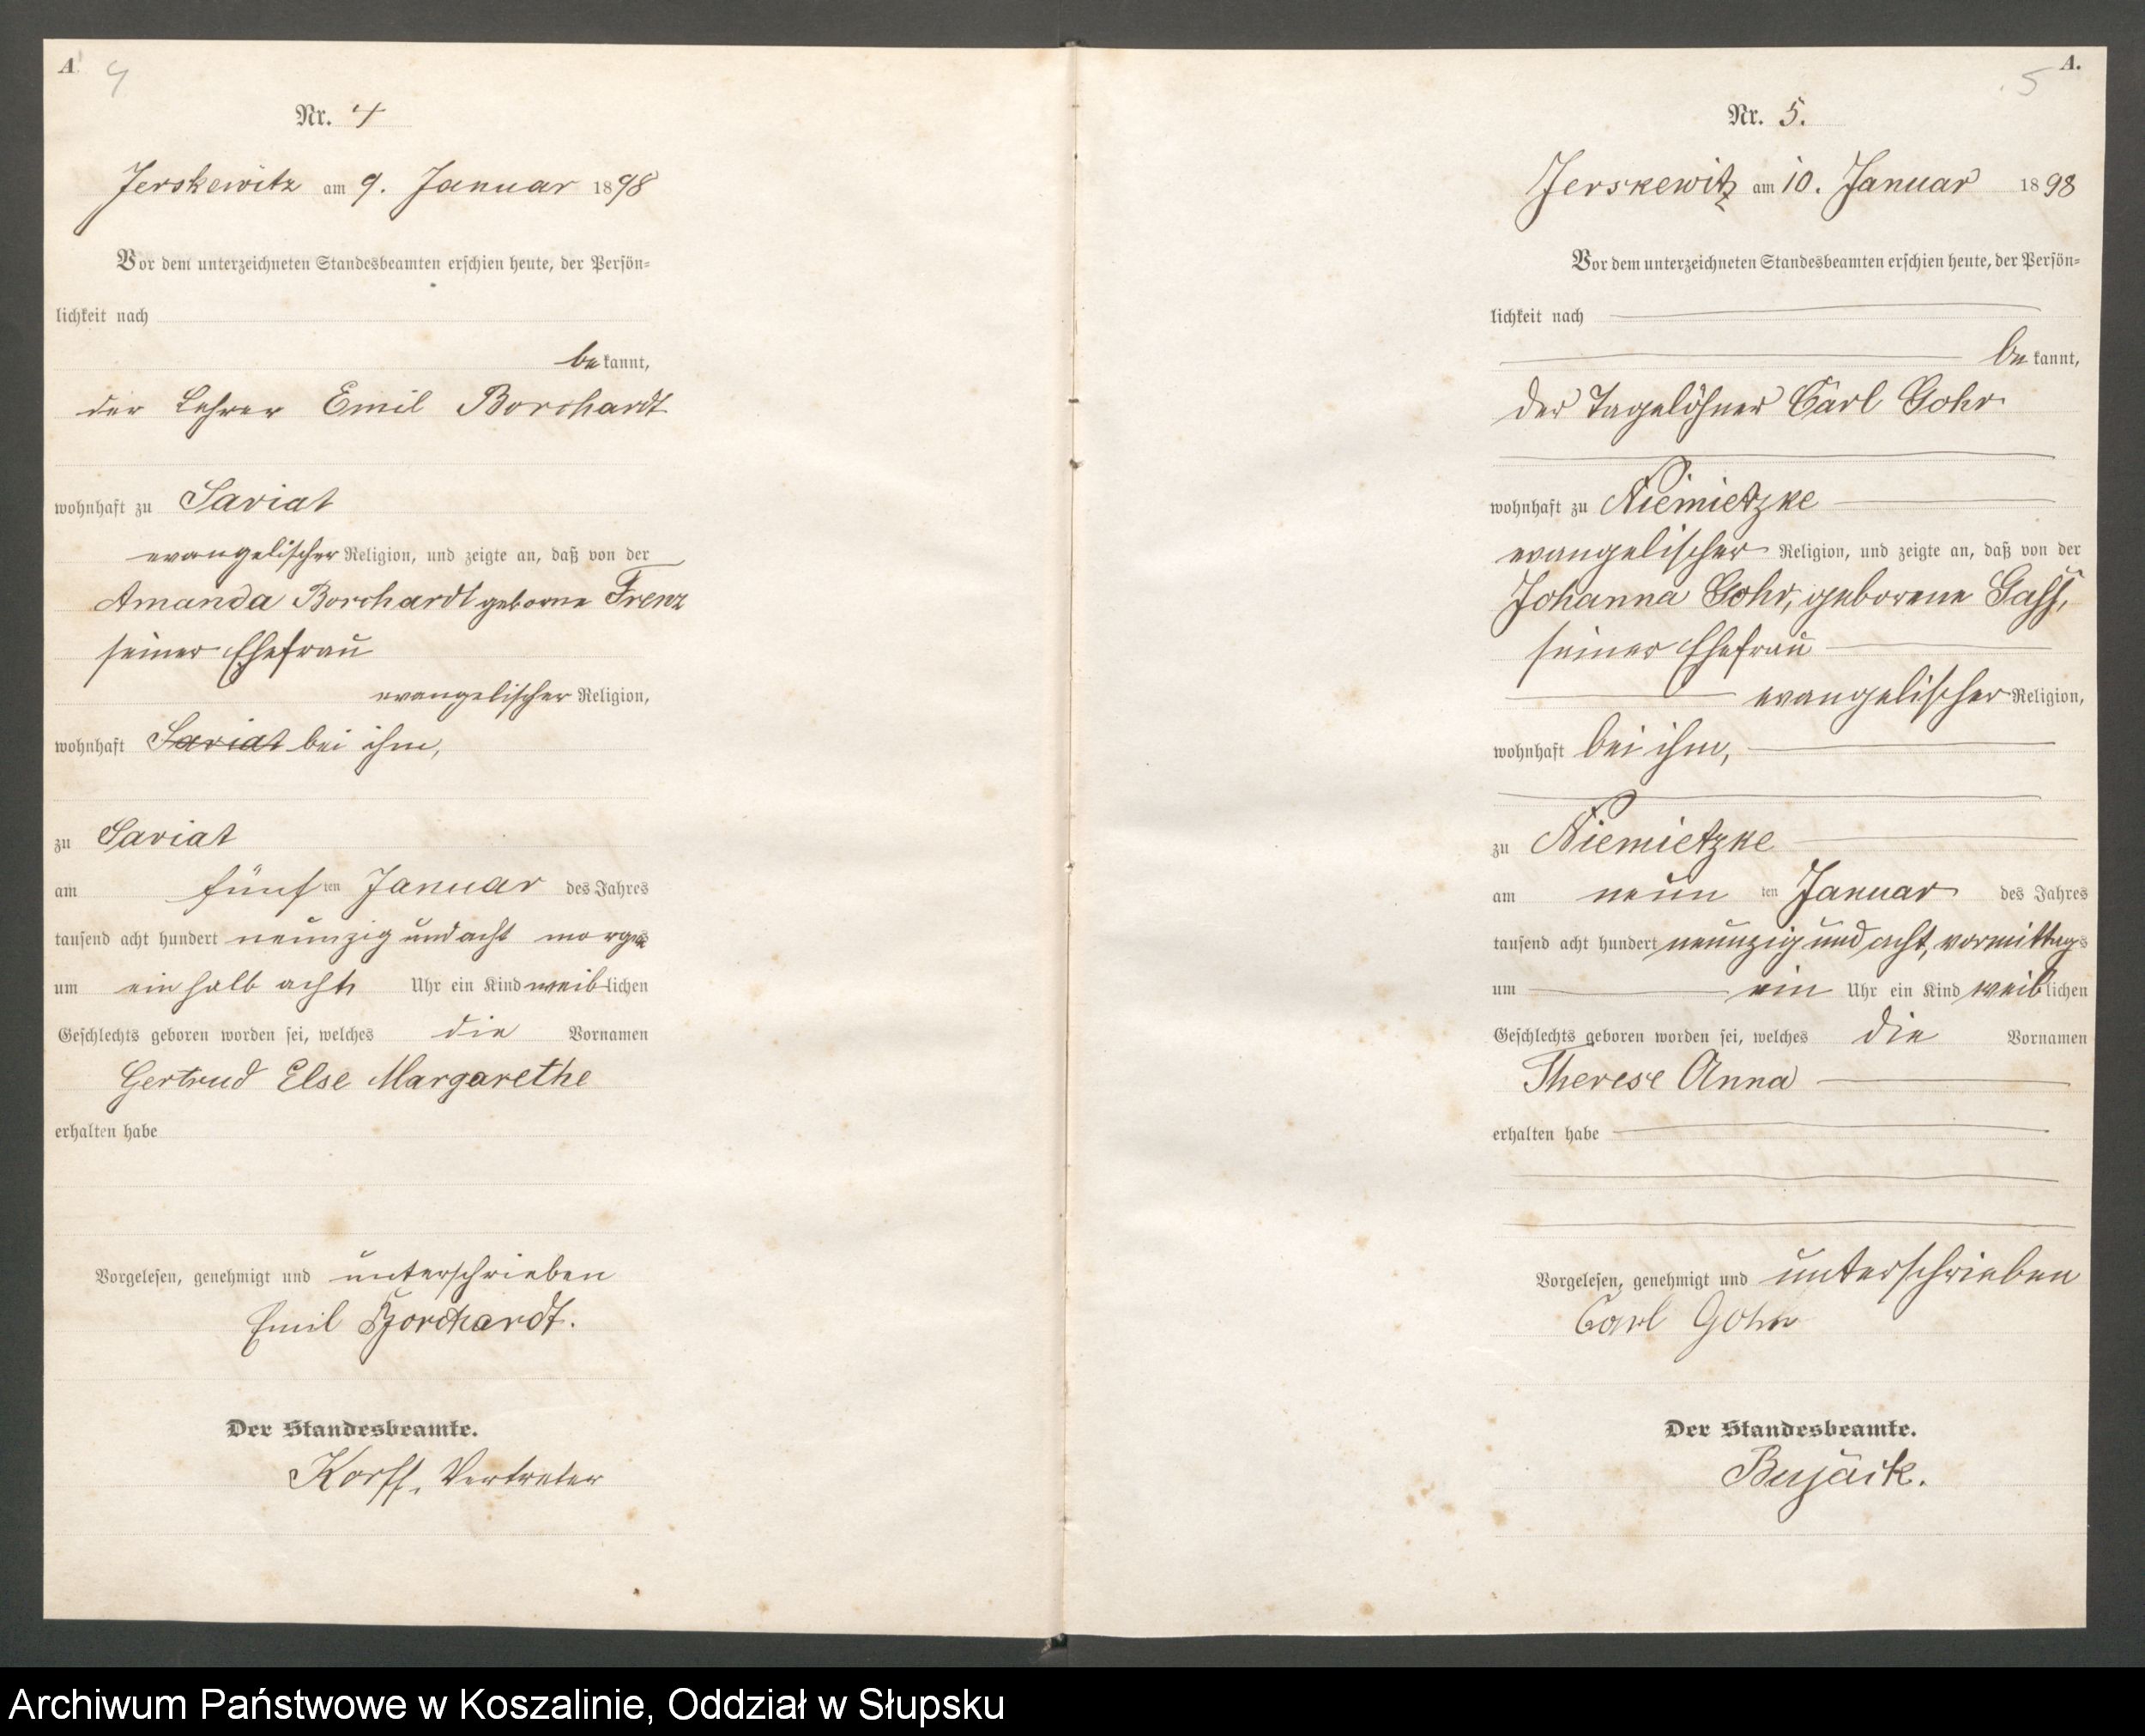 A
4
Nr. 4
Jerskewitz am 9. Januar 1898
Vor dem unterzeichneten Standesbeamten erschien heute, der Persön-
lichkeit nach
bekannt,
der Lehrer Emil Borchardt
wohnhaft zu Saviat
evangelischer Religion, und zeigte an, daß von der
Amanda Borchardt geborne Frenz
seiner Ehefrau
evangelischer Religion,
wohnhaft Saviat bei ihm,
zu Saviat
am fünften Januar des Jahres
tausend acht hundert neunzig und acht morgens
um ein halb acht Uhr ein Kind weiblichen
Geschlechts geboren worden sei, welches die Vornamen
Gertrud Else Margarethe
erhalten habe
Vorgelesen, genehmigt und unterschrieben
Emil Borchardt.
Der Standesbeamte.
Korff, Vertreter
A.
5
Nr. 5.
Jerskewitz am 10. Januar 1898
Vor dem unterzeichneten Standesbeamten erschien heute, der Persön-
lichkeit nach
bekannt,
der Tagelöhner Carl Gohr
wohnhaft zu Niemietzke
evangelischer Religion, und zeigte an, daß von der
Johanna Gohr, geborene Gass,
seiner Ehefrau
evangelischer Religion,
wohnhaft bei ihm,
zu Niemietzke
am neunten Januar des Jahres
tausend acht hundert neunzig und acht, vormittags
um ein Uhr ein Kind weiblichen
Geschlechts geboren worden sei, welches die Vornamen
Therese Anna
erhalten habe
Vorgelesen, genehmigt und unterschrieben
Carl Gohr
Der Standesbeamte.
Bujack.
Archiwum Państwowe w Koszalinie, Oddział w Słupsku